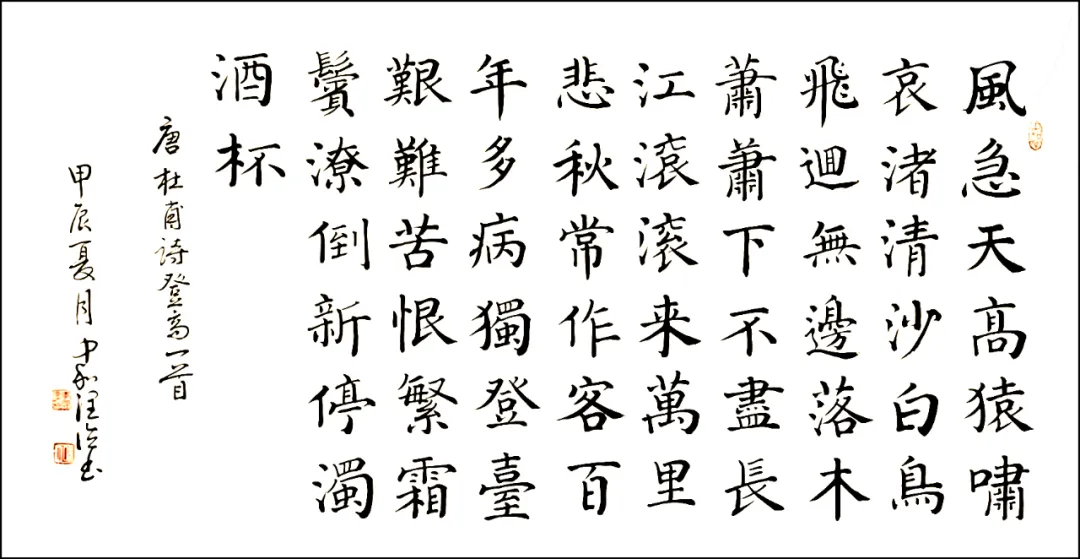 風急天髙猿嘯
哀渚清沙白鳥
飛迴無邊落木
蕭蕭下不盡長
江滾滾来萬里
悲秋常作客百
年多病獨登臺
艱難苦恨繁霜
鬢潦倒新停濁
酒杯
唐杜甫詩登高一首
甲辰夏月